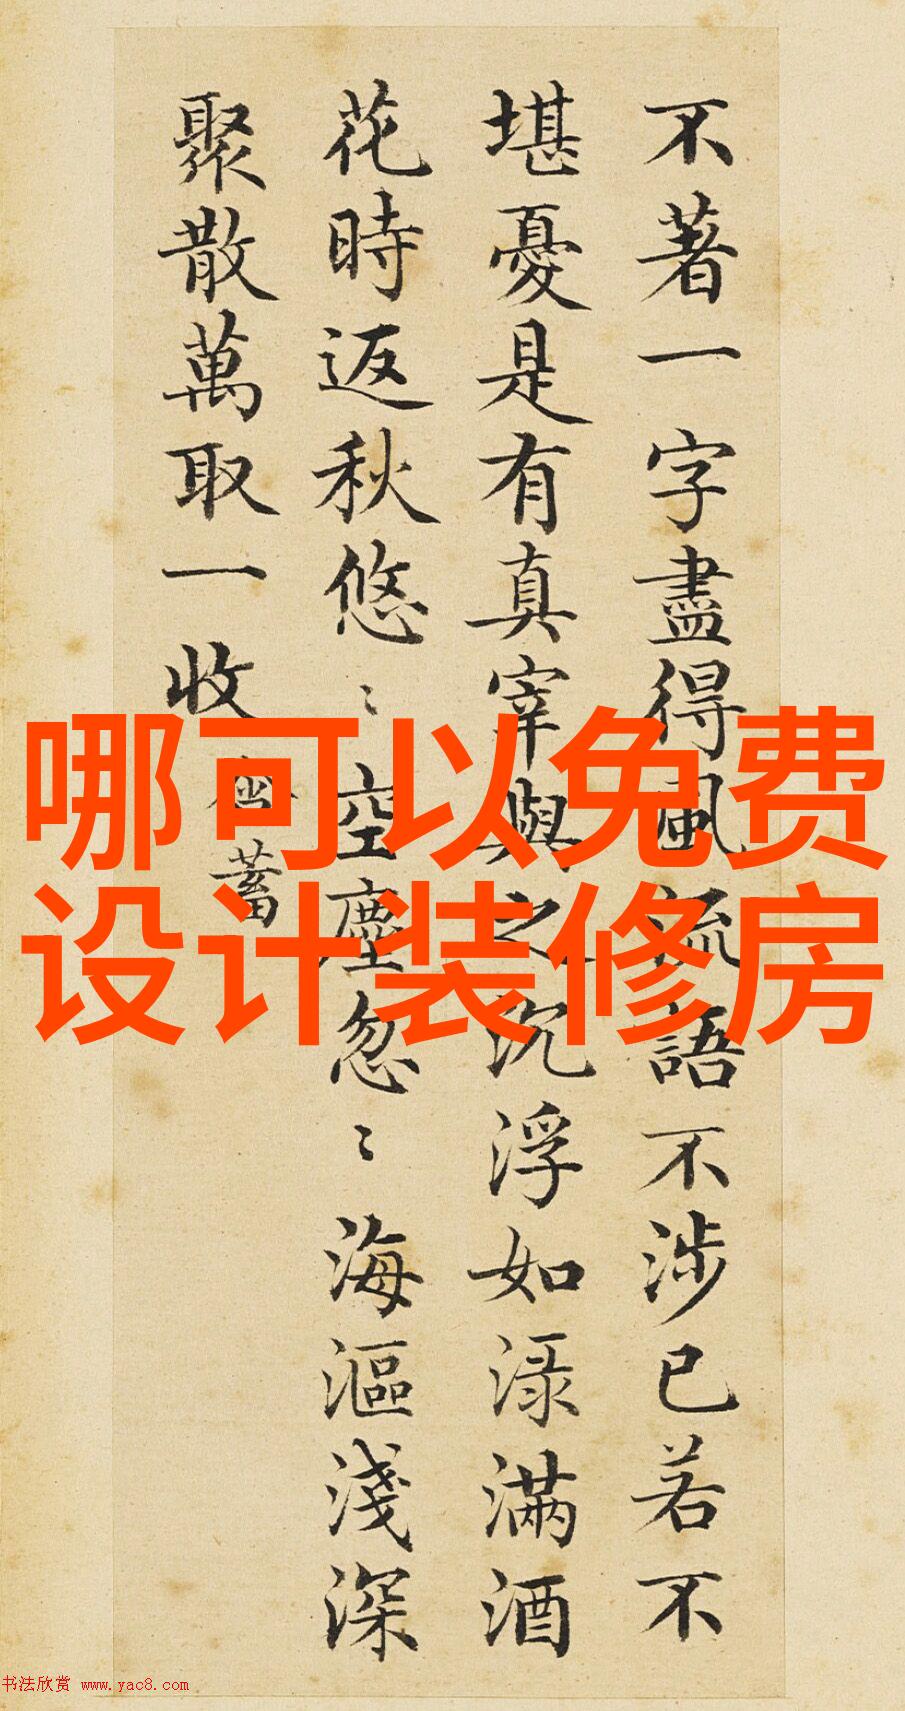 不著一字盡得風流語不涉已若不
堪憂是有真宰與之沉浮如渌滿酒
花時返秋悠〻空塵忽〻海漚淺深
聚散萬取一收
蓄
哪可以免费
设计装修房
书法欣赏 www.yac8.com